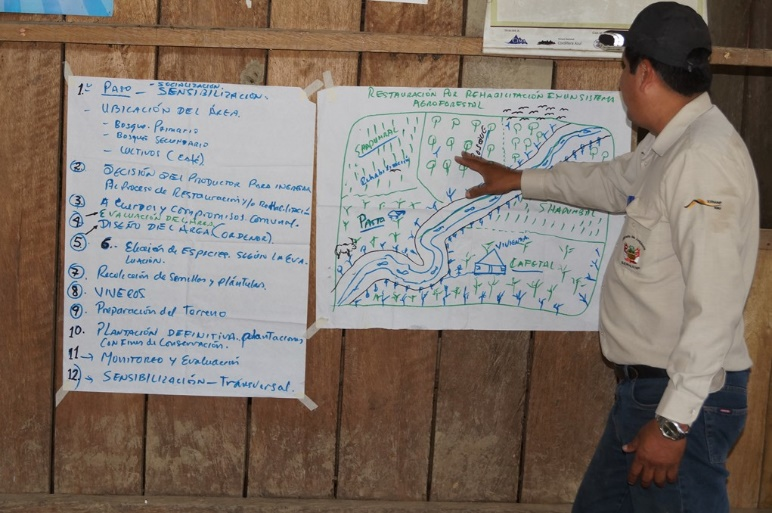 1.º PASO - SOCIALIZACION.
SENSIBILIZACIÓN.
- UBICACIÓN DEL ÁREA.
- Bosque Primario
- Bosque Secundario
- CULTIVOS (CAFÉ)
2 DECISIÓN DEL PRODUCTOR PARA INGRESAR
Al Proceso de Restauración y/o Rehabilitación
3 ACUERDOS Y COMPROMISOS COMUNAL.
4 EVALUACIÓN DEL AREA
5 DISEÑO DEL AREA (ORDENAR).
6.- Elección de Especies según la Eva
luación.
7 Recolección de Semillas y plántulas.
8 VIVEROS
9 Preparación del Terreno
10. PLANTACIÓN DEFINITIVA. plantaciones
Con Fines de Conservación.
11 → MONITOREO Y Evaluación
12 → SENSIBILIZACIÓN - Transversal.
RESTAURACIÓN POR REHABILITACIÓN EN UN SISTEMA
AGROFORESTAL
SHAPUMBAL
Rehabilitación
PASTO
SHAPUMBAL
VIVIENDA
CAFETAL